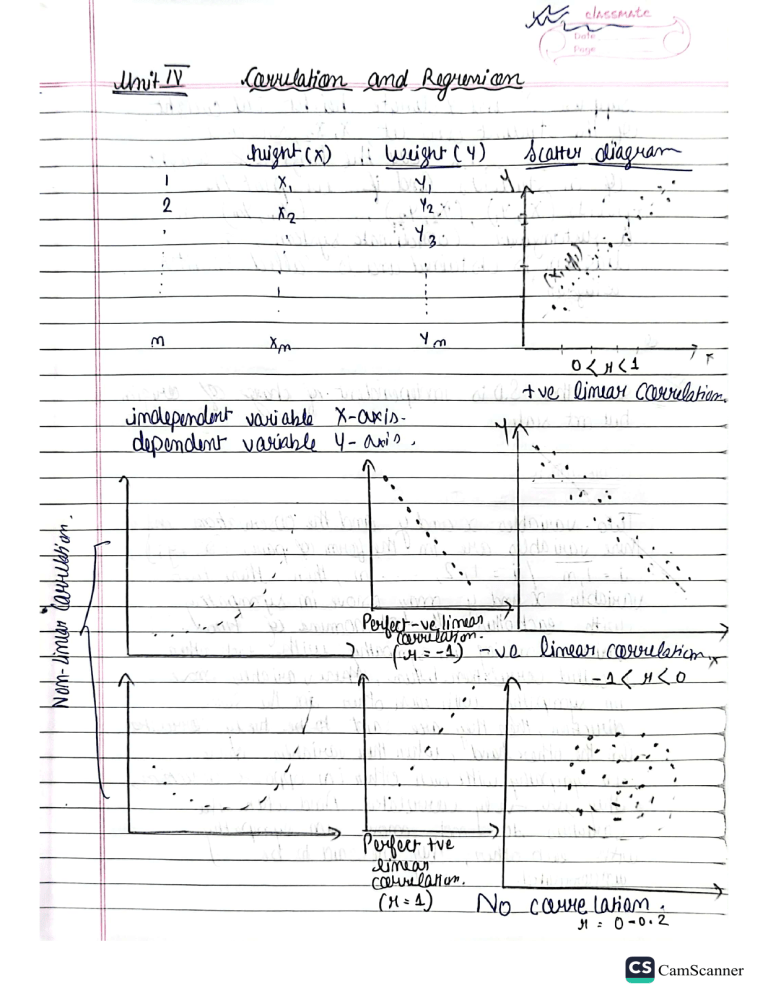 classmate
Date
Page
Unit IV Correlation and Regression
height (x) : Weight (y) Scatter diagram
1 x1 y1
2 x2 y2
y3
n xn yn
y
(x1, y1)
x
0 < r < 1
+ve linear correlation.
independent variable X-axis.
dependent variable Y-axis.
Y
Non-linear Correlation.
Perfect -ve linear
correlation.
(r = -1)
-ve linear correlation.
x
-1 < r < 0
Perfect +ve
linear
correlation.
(r = 1)
No correlation.
r = 0-0.2
CS CamScanner